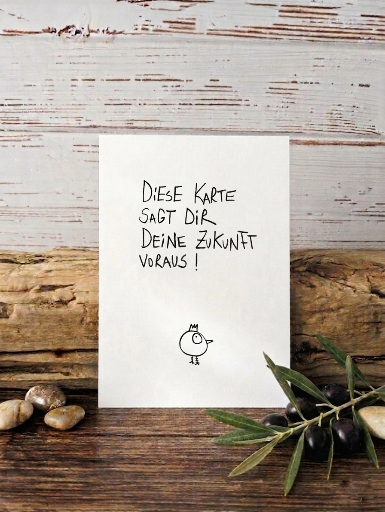 DiESE KARTE
SAGT DiR
DEiNE ZUKUNFT
VORAUS!